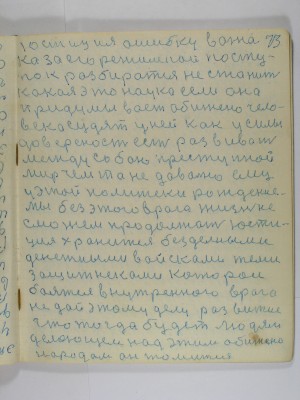 юстиция ошибку важа 73
каза его режим гай посту-
пок разбиратия не станит
какая это наука если она
придумывает обижено чело-
века судят у ней как усилы
довереност ест развиват
между собою приступной
мир чем та не давано ему
у этой политеки рождение-
мы без этого врага жизн не
сможем продолжат юсти-
ция хранится безделными
денежными вайсками теми
защитнеками которои
боятся внутренного врага
не дай этому делу развитие
что тогда будет людям
делающем над этим обижено
народом